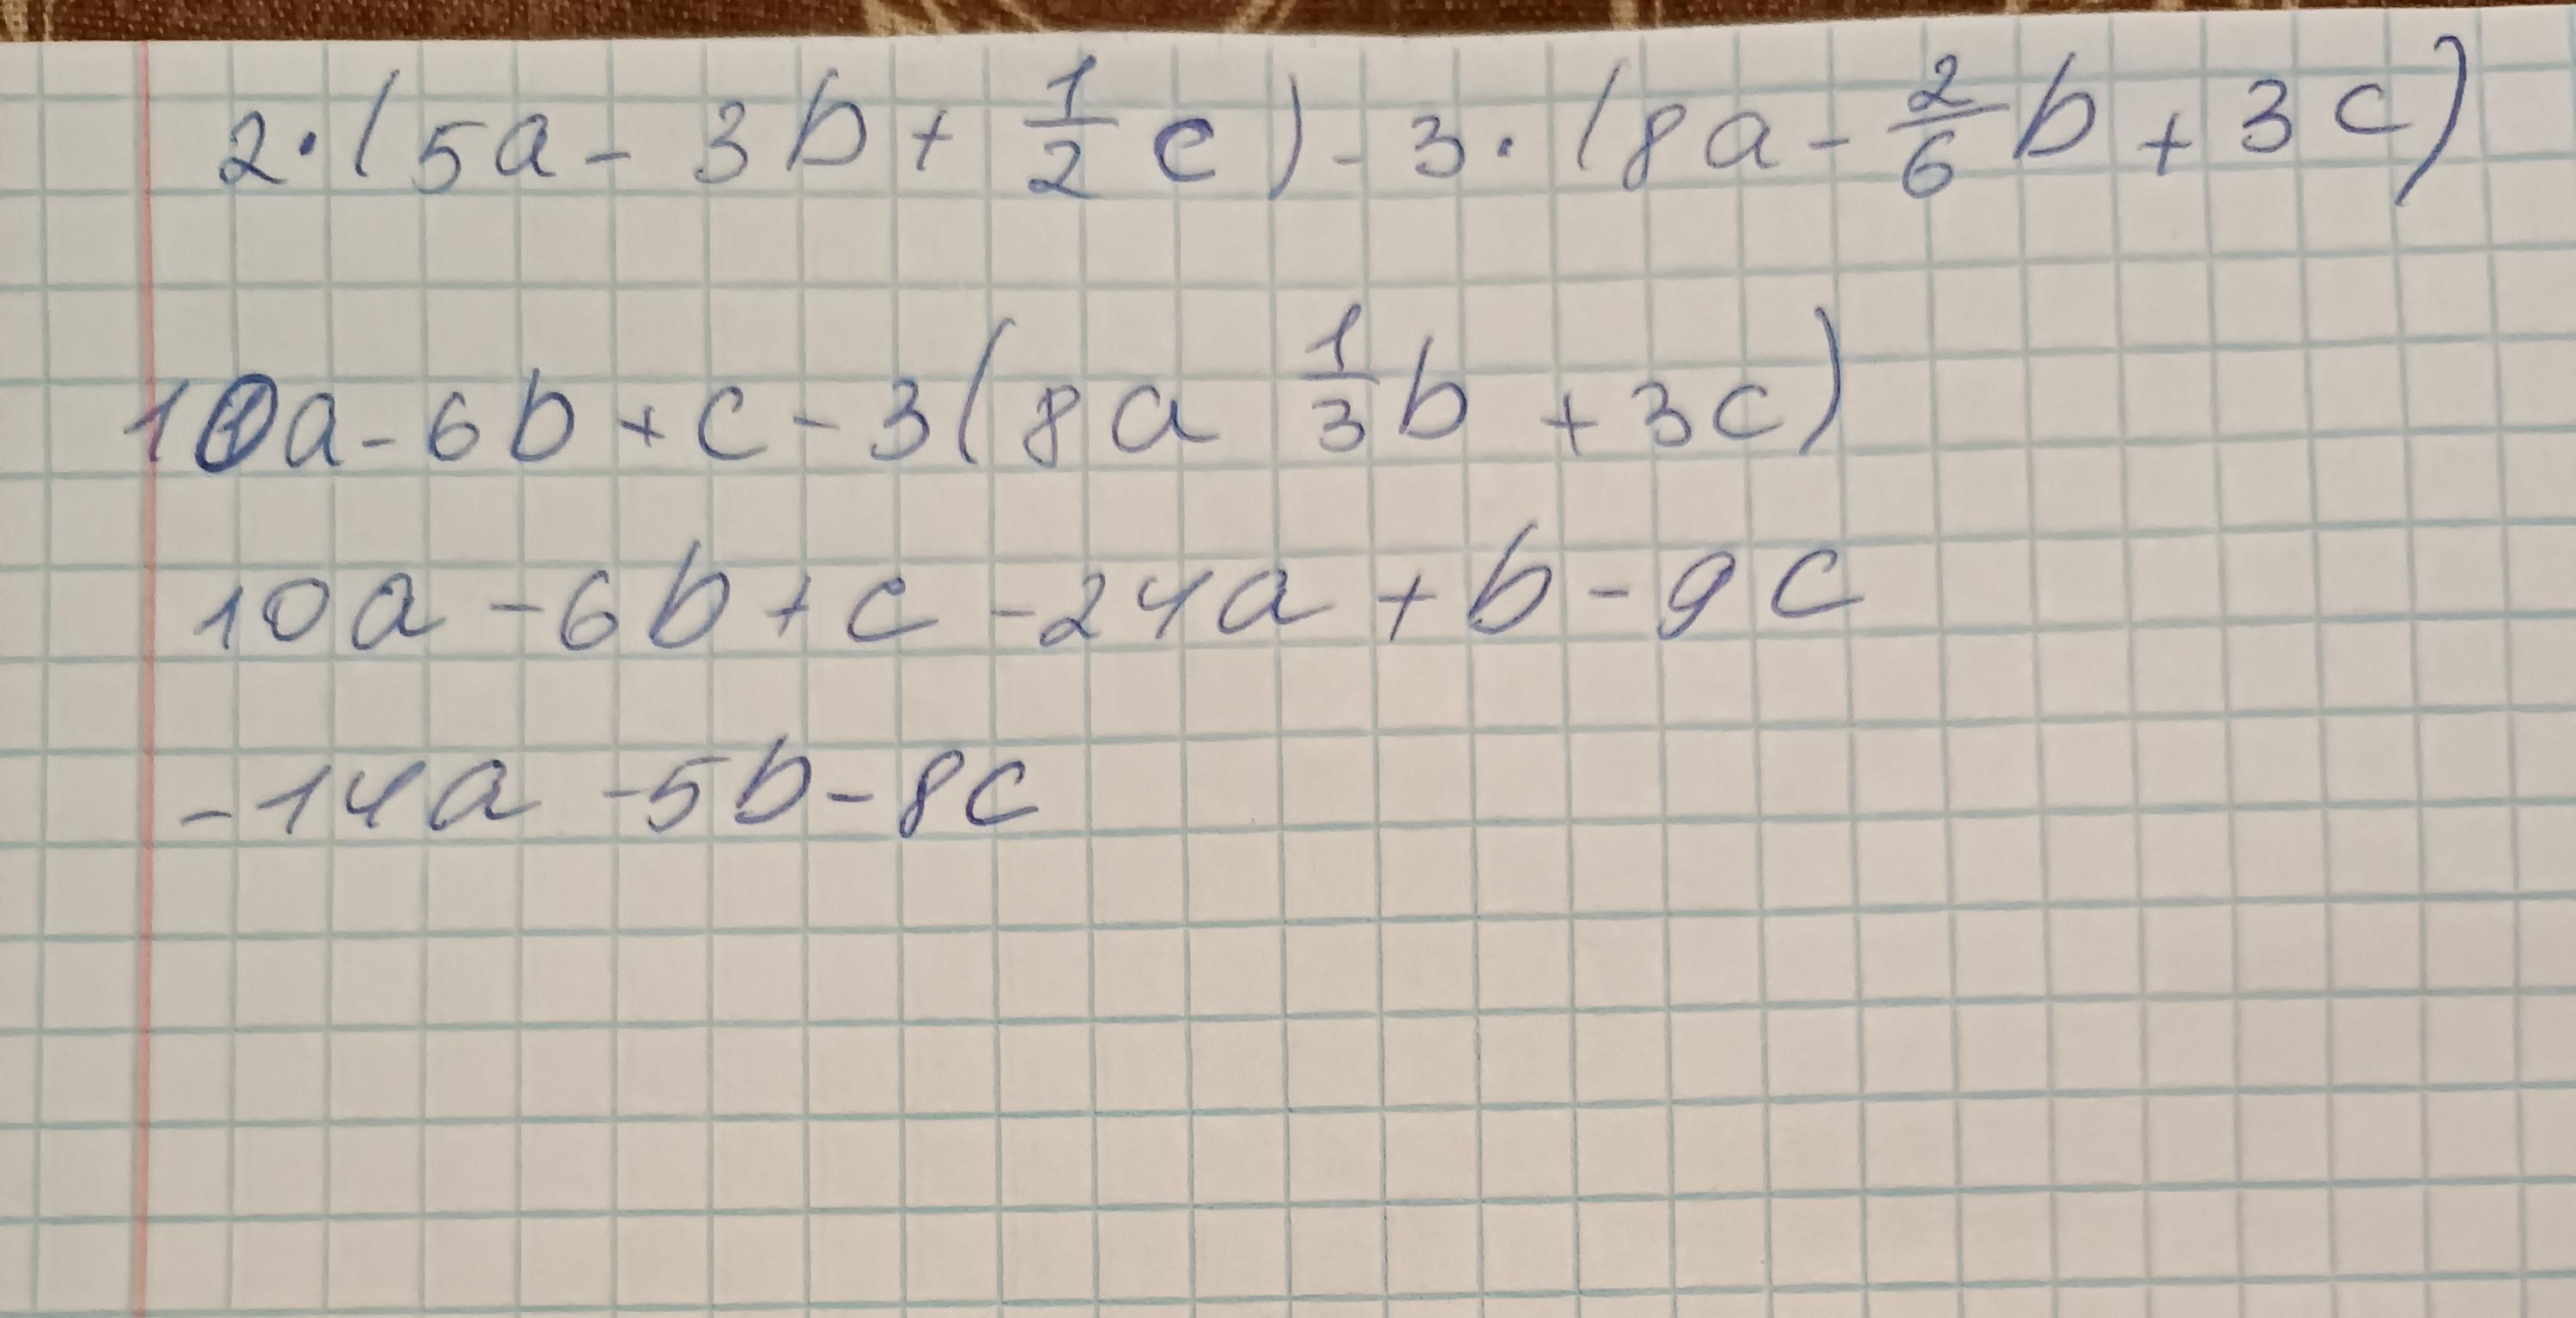 2·(5a - 3b + 1/2 c) - 3·(8a - 2/6 b + 3c)
10a - 6b + c - 3(8a 1/3 b + 3c)
10a - 6b + c - 24a + b - 9c
-14a - 5b - 8c